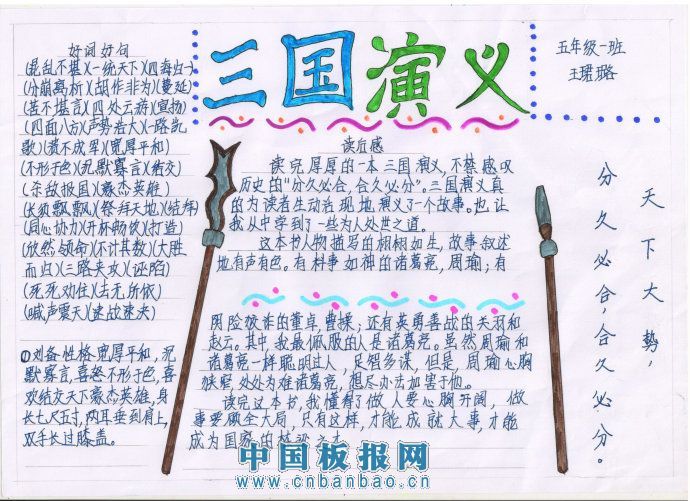 三国演义
五年级一班
王珺璐
好词好句
(混乱不堪)(一统天下)(四海归一)
(分崩离析)(胡作非为)(蔓延)
(苦不堪言)(四处云游)(宣扬)
(四面八方)(声势浩大)(一路乱
歌)(羞不成军)(宽厚平和)
(不形于色)(沉默寡言)(结交)
(杀敌报国)(豪杰英雄)
(长须飘飘)(祭拜天地)(结拜)
(同心协力)(开怀畅饮)(打造)
(欣然领命)(不计其数)(大胜
而归)(三路夹攻)(诬陷)
(死死劝住)(去无所依)
(喊声震天)(速战速决)
①刘备性格宽厚平和，沉
默寡言，喜怒不形于色，喜
欢结交天下豪杰英雄，身
长七尺五寸，两耳垂到肩上，
双手长过膝盖。
读后感
读完厚厚的一本三国演义，不禁感叹
历史的“分久必合，合久必分”。三国演义真
的为读者生动活现地演义了一个故事。也让
我从中学到了一些为人处世之道。
这本书人物描写的栩栩如生，故事叙述
地有声有色。有料事如神的诸葛亮，周瑜；有
阴险狡诈的董卓，曹操；还有英勇善战的关羽和
赵云。其中，我最佩服的人是诸葛亮。虽然周瑜和
诸葛亮一样聪明过人，足智多谋，但是，周瑜心胸
狭窄，处处为难诸葛亮，想尽办法加害于他。
读完这本书，我懂得了做人要心胸开阔，做
事要顾全大局，只有这样，才能成就大事，才能
成为国家的栋梁之才
天下大势，
分久必合，合久必分。
中国板报网
www.cnbanbao.cn